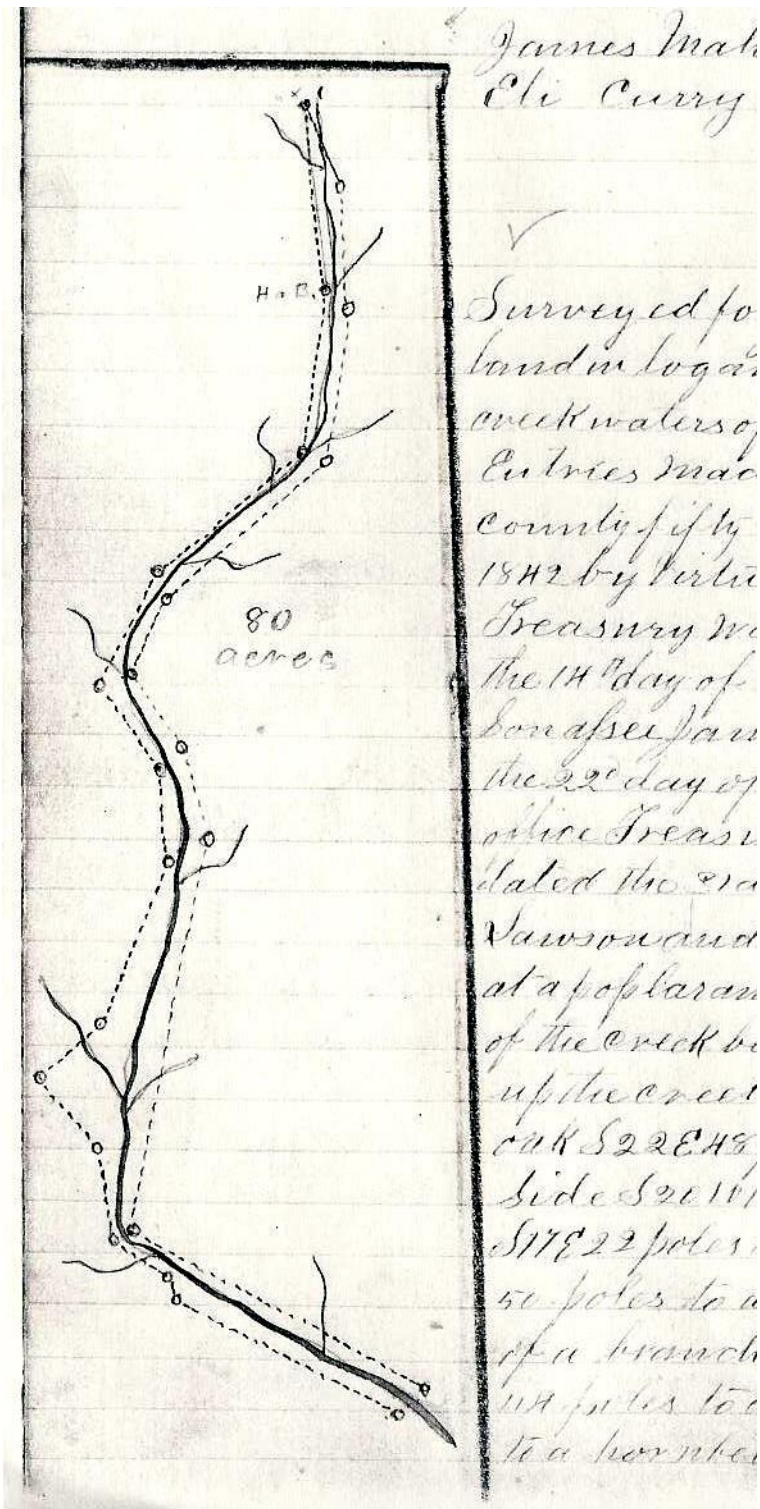 James Mah
Eli Curry
H. B.
80
acres
Surveyed fo
land in logan
creek waters of
Entries Mad
county fifty
1842 by Virtu
Treasury Wa
the 14th day of
Son assee Jam
the 22d day of
office Treasu
dated the
Lawson and
at a poplar an
of the creek b
up the creek
oak S22E48
Side S20W
S17E22 poles
50 poles to a
of a branch
44 poles to a
to a hornbe